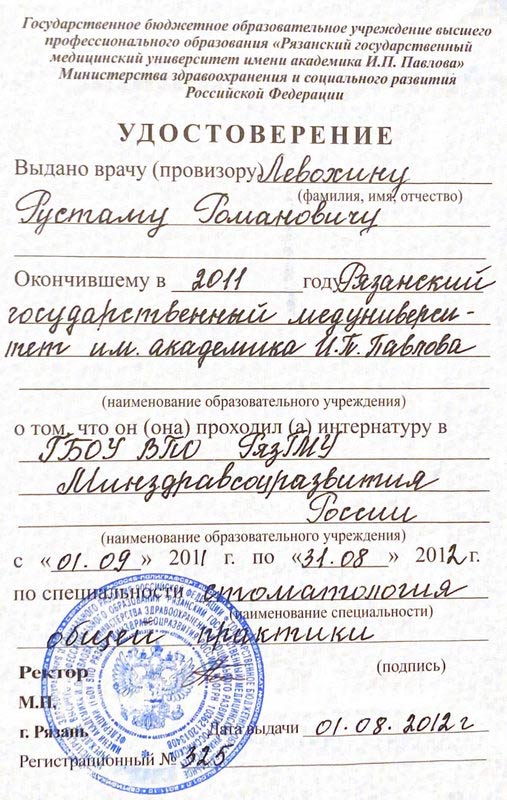 Государственное бюджетное образовательное учреждение высшего
профессионального образования «Рязанский государственный
медицинский университет имени академика И.П. Павлова»
Министерства здравоохранения и социального развития
Российской Федерации
УДОСТОВЕРЕНИЕ
Выдано врачу (провизору) Левохину
(фамилия, имя, отчество)
Рустаму Романовичу
Окончившему в 2011 году Рязанский
государственный медуниверси-
тет им. академика И.П. Павлова
(наименование образовательного учреждения)
о том, что он (она) проходил (а) интернатуру в
ГБОУ ВПО РязГМУ
Минздравсоцразвития
России
(наименование образовательного учреждения)
с «01.09» 2011 г. по «31.08» 2012 г.
по специальности стоматология
(наименование специальности)
общей практики
Ректор
(подпись)
М.П.
г. Рязань
Дата выдачи 01.08.2012 г
Регистрационный № 325